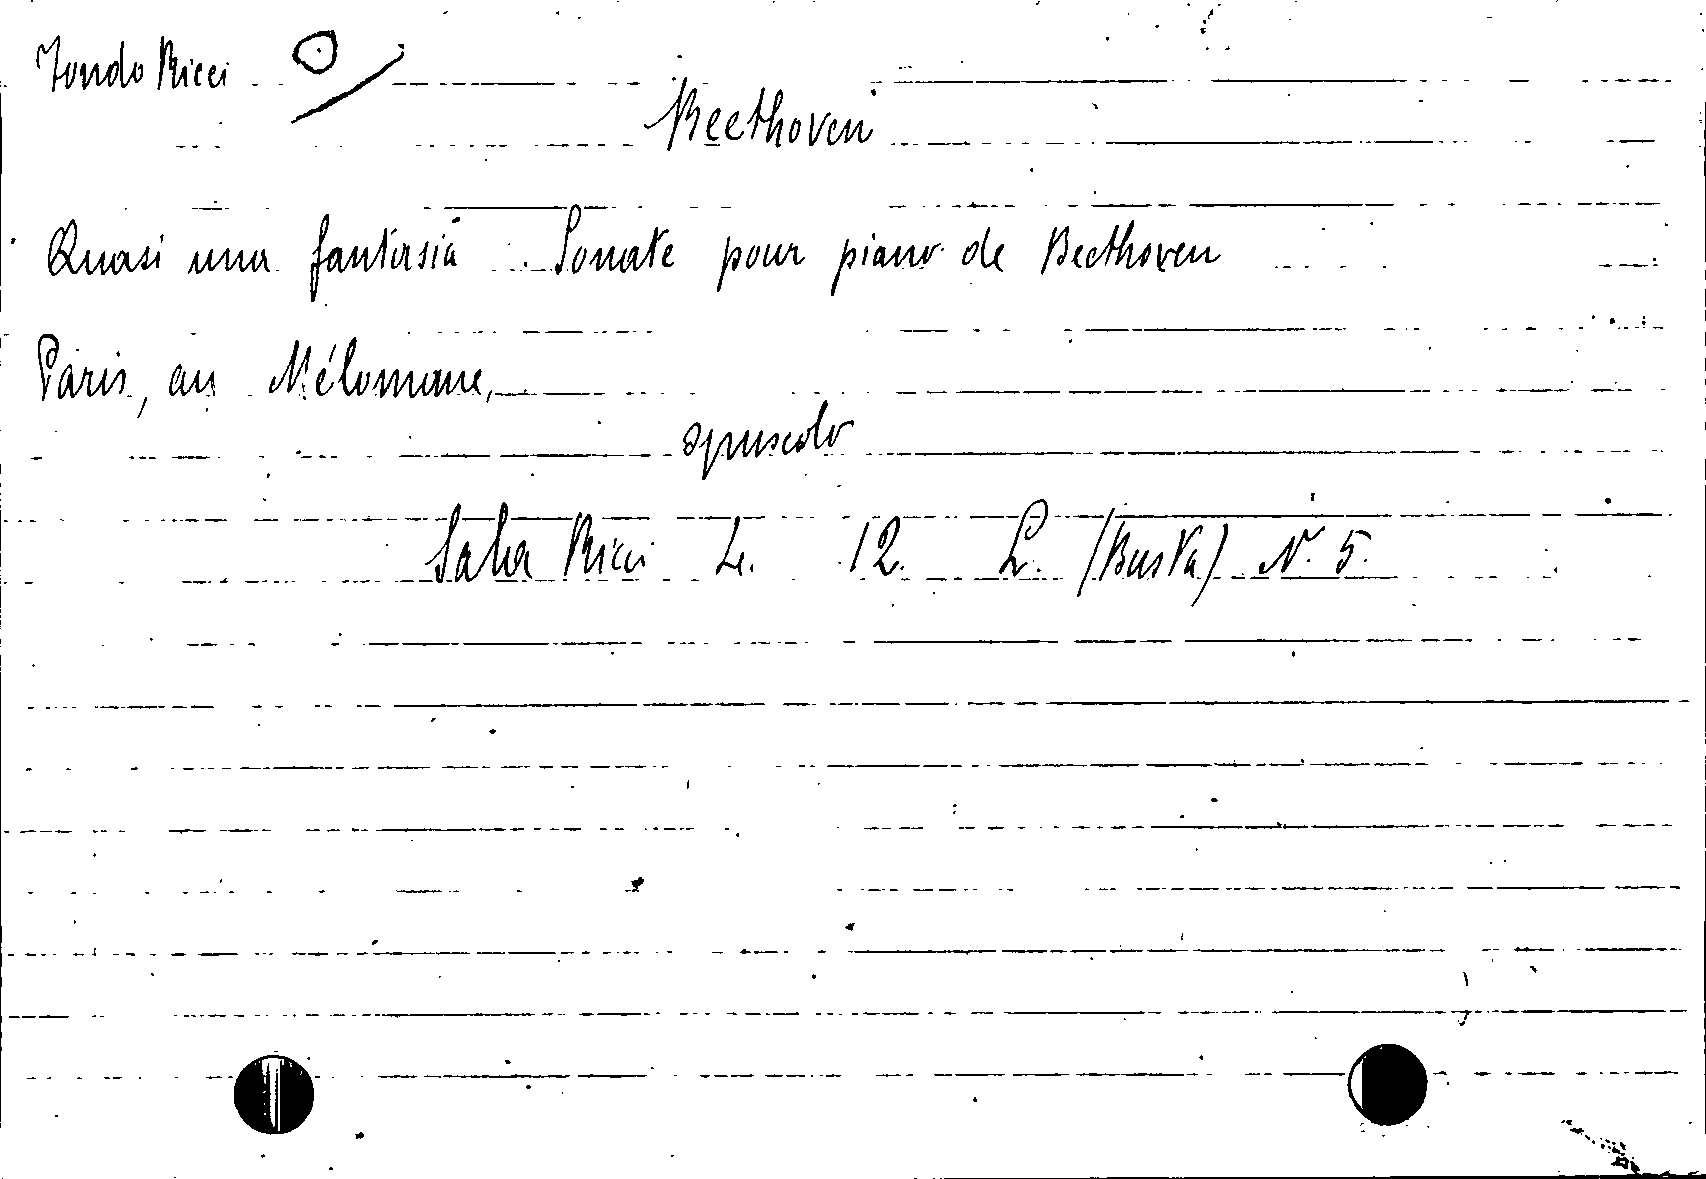 Fondo Ricci
Beethoven
Quasi una fantasia. Sonate pour piano de Beethoven
Paris, au Mélomane,
opuscolo
Sala Ricci L. 12. L. (Busta) N. 5.